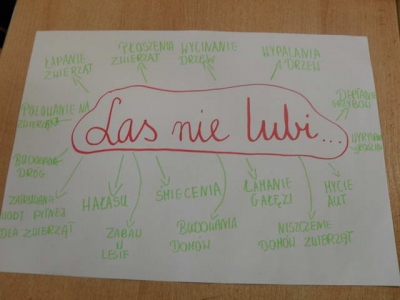 ŁAPANIE
ZWIERZĄT
PŁOSZENIA
ZWIERZĄT
WYCINANIE
DRZEW
WYPALANIA
DRZEW
DEPTANIE
GRZYBÓW
POLOWANIE NA
ZWIERZĘTA
Las nie lubi...
BUDOWANIA
DRÓG
WODY PITNEJ
DLA ZWIERZĄT
HAŁASU
ZABAW
W
LESIE
ŚMIECENIA
BUDOWANIA
DOMÓW
ŁAMANIE
GAŁĘZI
NISZCZENIE
DOMÓW ZWIERZĄT
MYCIE
AUT